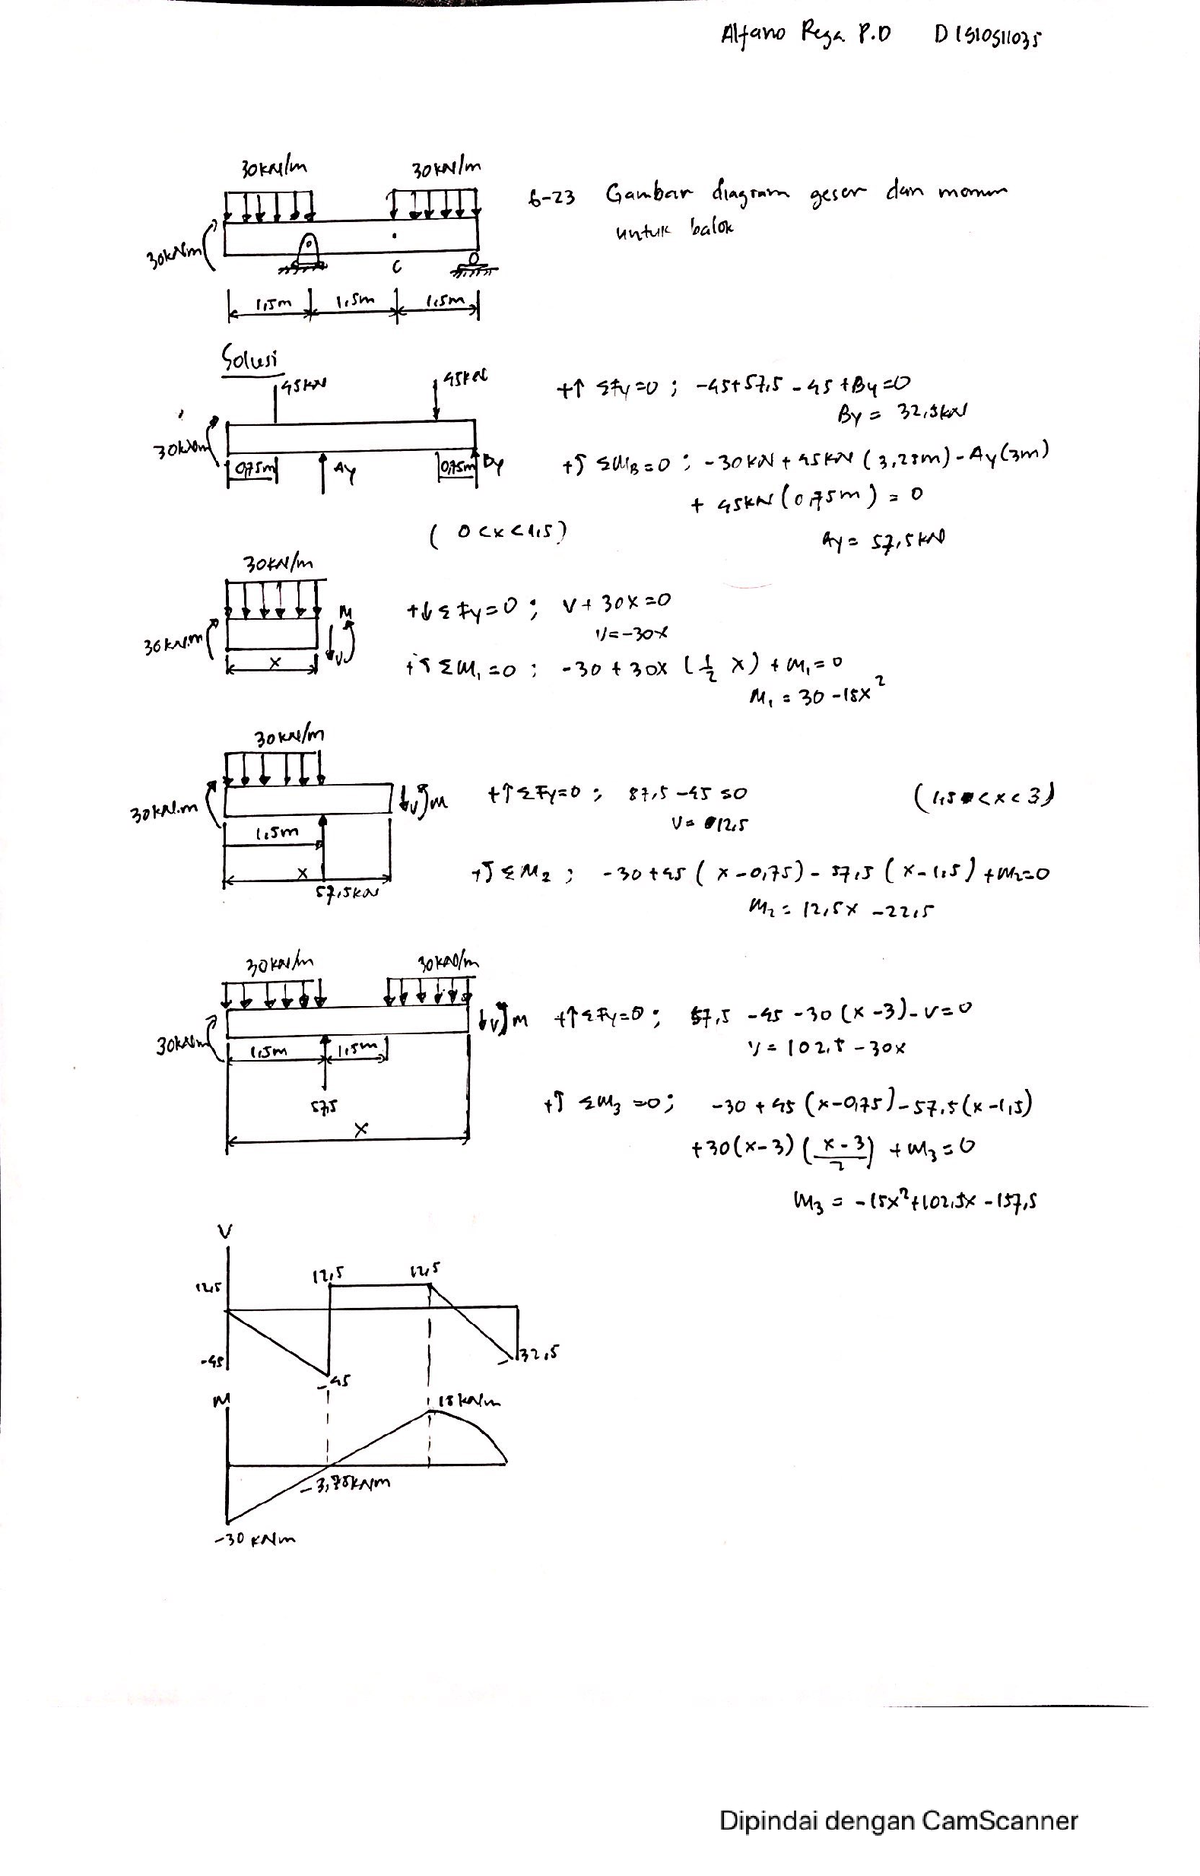 Alfano Rega P.D D1510511035
30kN/m 30kN/m
6-23 Gambar diagram geser dan momen
untuk balok
30kNm
C
1,5m 1,5m 1,5m
Solusi
45kN 45kN
30kNm
0,75m Ay 0,75m By
+↑ ΣFy=0 ; -45+57,5-45+By=0
By = 32,5kN
+↑ ΣMB=0 ; -30kN + 45kN (3,25m) - Ay(3m)
+ 45kN (0,75m) = 0
Ay = 57,5kN
( 0<x<1,5)
30kN/m
30kN.m M
x V
+↓ ΣFy=0 ; V+30x=0
V=-30x
+↑ ΣM1=0 ; -30+30x (1/2 x) + M1=0
M1 = 30-15x²
30kN/m
30kN.m V M
1,5m
x
57,5kN
+↑ ΣFy=0 ; 87,5-45 =0 (1,5<x<3)
V= 12,5
+↑ ΣM2 ; -30+45 ( x-0,75)- 57,5 (x-1,5) +M2=0
M2 = 12,5x -22,5
30kN/m 30kN/m
30kNm V M
1,5m 1,5m
57,5
x
+↑ ΣFy=0 ; 57,5 -45 -30 (x-3)-V=0
V = 102,5 -30x
+↑ ΣM3 =0 ; -30 + 45 (x-0,75)-57,5(x-1,5)
+30(x-3) (x-3/2) +M3=0
M3 = -15x²+102,5x -157,5
V
12,5 12,5 12,5
-45 -45 -32,5
M
18kN/m
-3,75kNm
-30 kNm
Dipindai dengan CamScanner